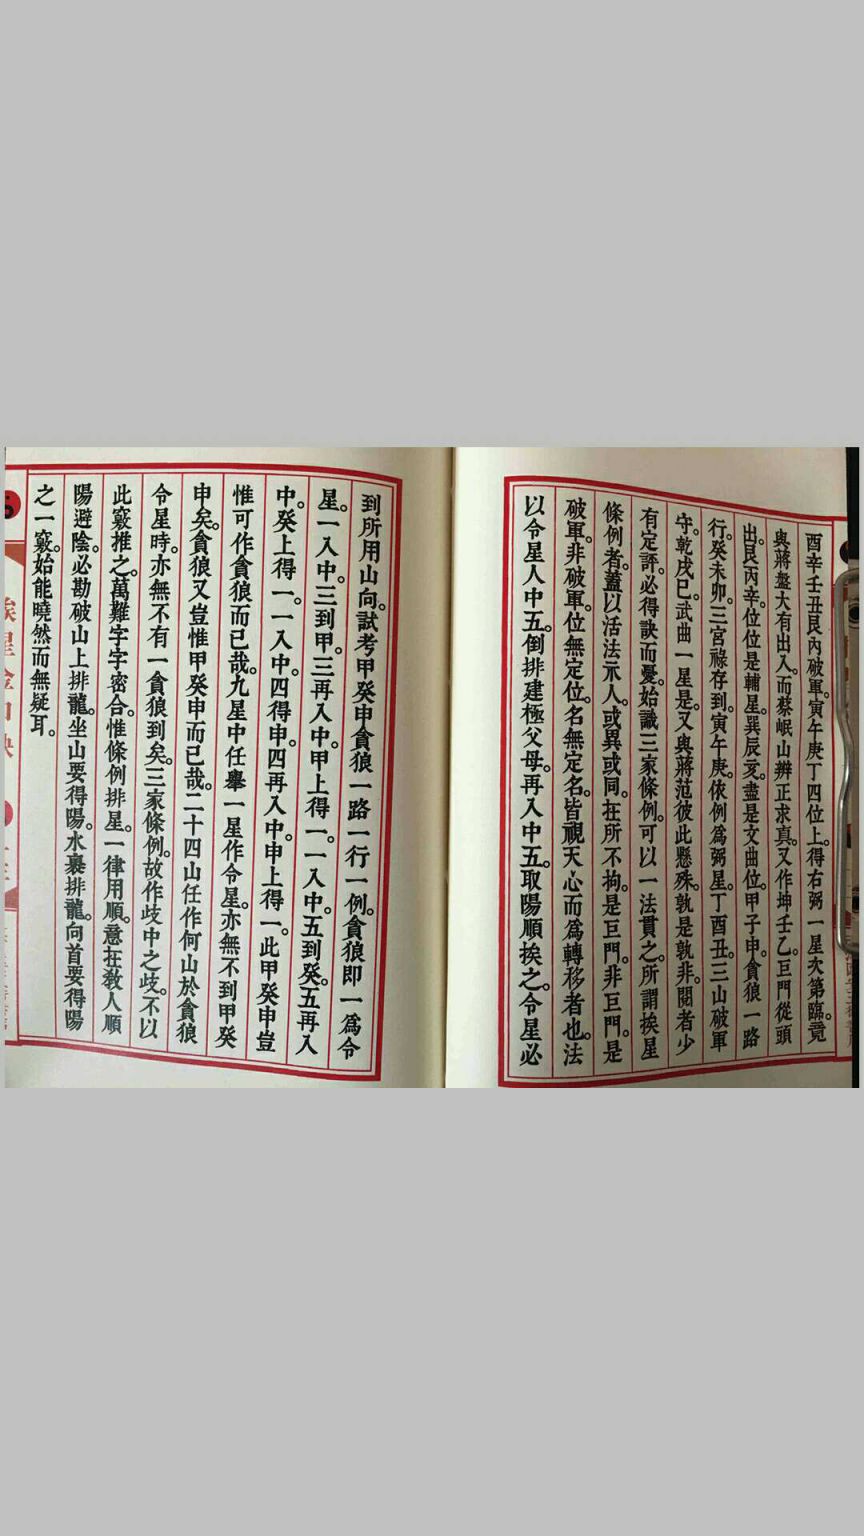 酉辛壬丑艮內破軍。寅午庚丁四位上。得右弼一星。次第臨。竟
與蔣盤大有出入。而蔡岷山辨正求真。又作坤壬乙。巨門從頭
出。艮丙辛。位位是輔星。巽辰亥。盡是文曲位。甲子申。貪狼一路
行。癸未卯。三宮祿存到。寅午庚。依例為弼星。丁酉丑。三山破軍
守。乾戌巳。武曲一星是。又與蔣范彼此懸殊。孰是孰非。閱者少
有定評。必得訣而憂。始識三家條例。可以一法貫之。所謂挨星
條例者。蓋以活法示人。或異或同。在所不拘。是巨門。非巨門。是
破軍。非破軍。位無定位。名無定名。皆視天心而為轉移者也。法
以令星人中五。倒排建極父母。再入中五。取陽順挨之。令星必
到所用山向。試考甲癸申貪狼一路一行一例。貪狼即一為令
星。一入中。三到甲。三再入中。甲上得一。一入中。五到癸。五再入
中。癸上得一。一入中。四得申。四再入中。申上得一。此甲癸申豈
惟可作貪狼而已哉。九星中任舉一星作令星。亦無不到甲癸
申矣。貪狼又豈惟甲癸申而已哉。二十四山任作何山於貪狼
令星時。亦無不有一貪狼到矣。三家條例。故作歧中之歧。不以
此竅推之。萬難字字密合。惟條例排星。一律用順。意在教人順
陽避陰。必勘破山上排龍。坐山要得陽。水裏排龍。向首要得陽
之一竅。始能曉然而無疑耳。